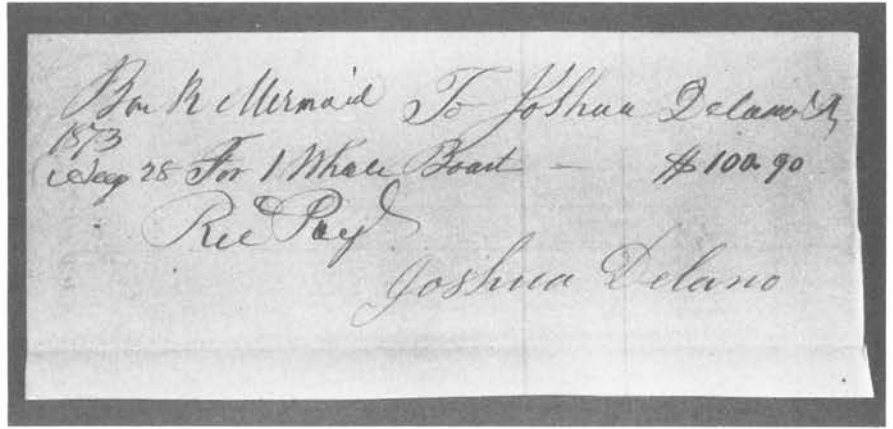 Bark Mermaid To Joshua Delano Dr
1873
Sep 28 For 1 Whale Boat — $100.90
Rec Pay
Joshua Delano